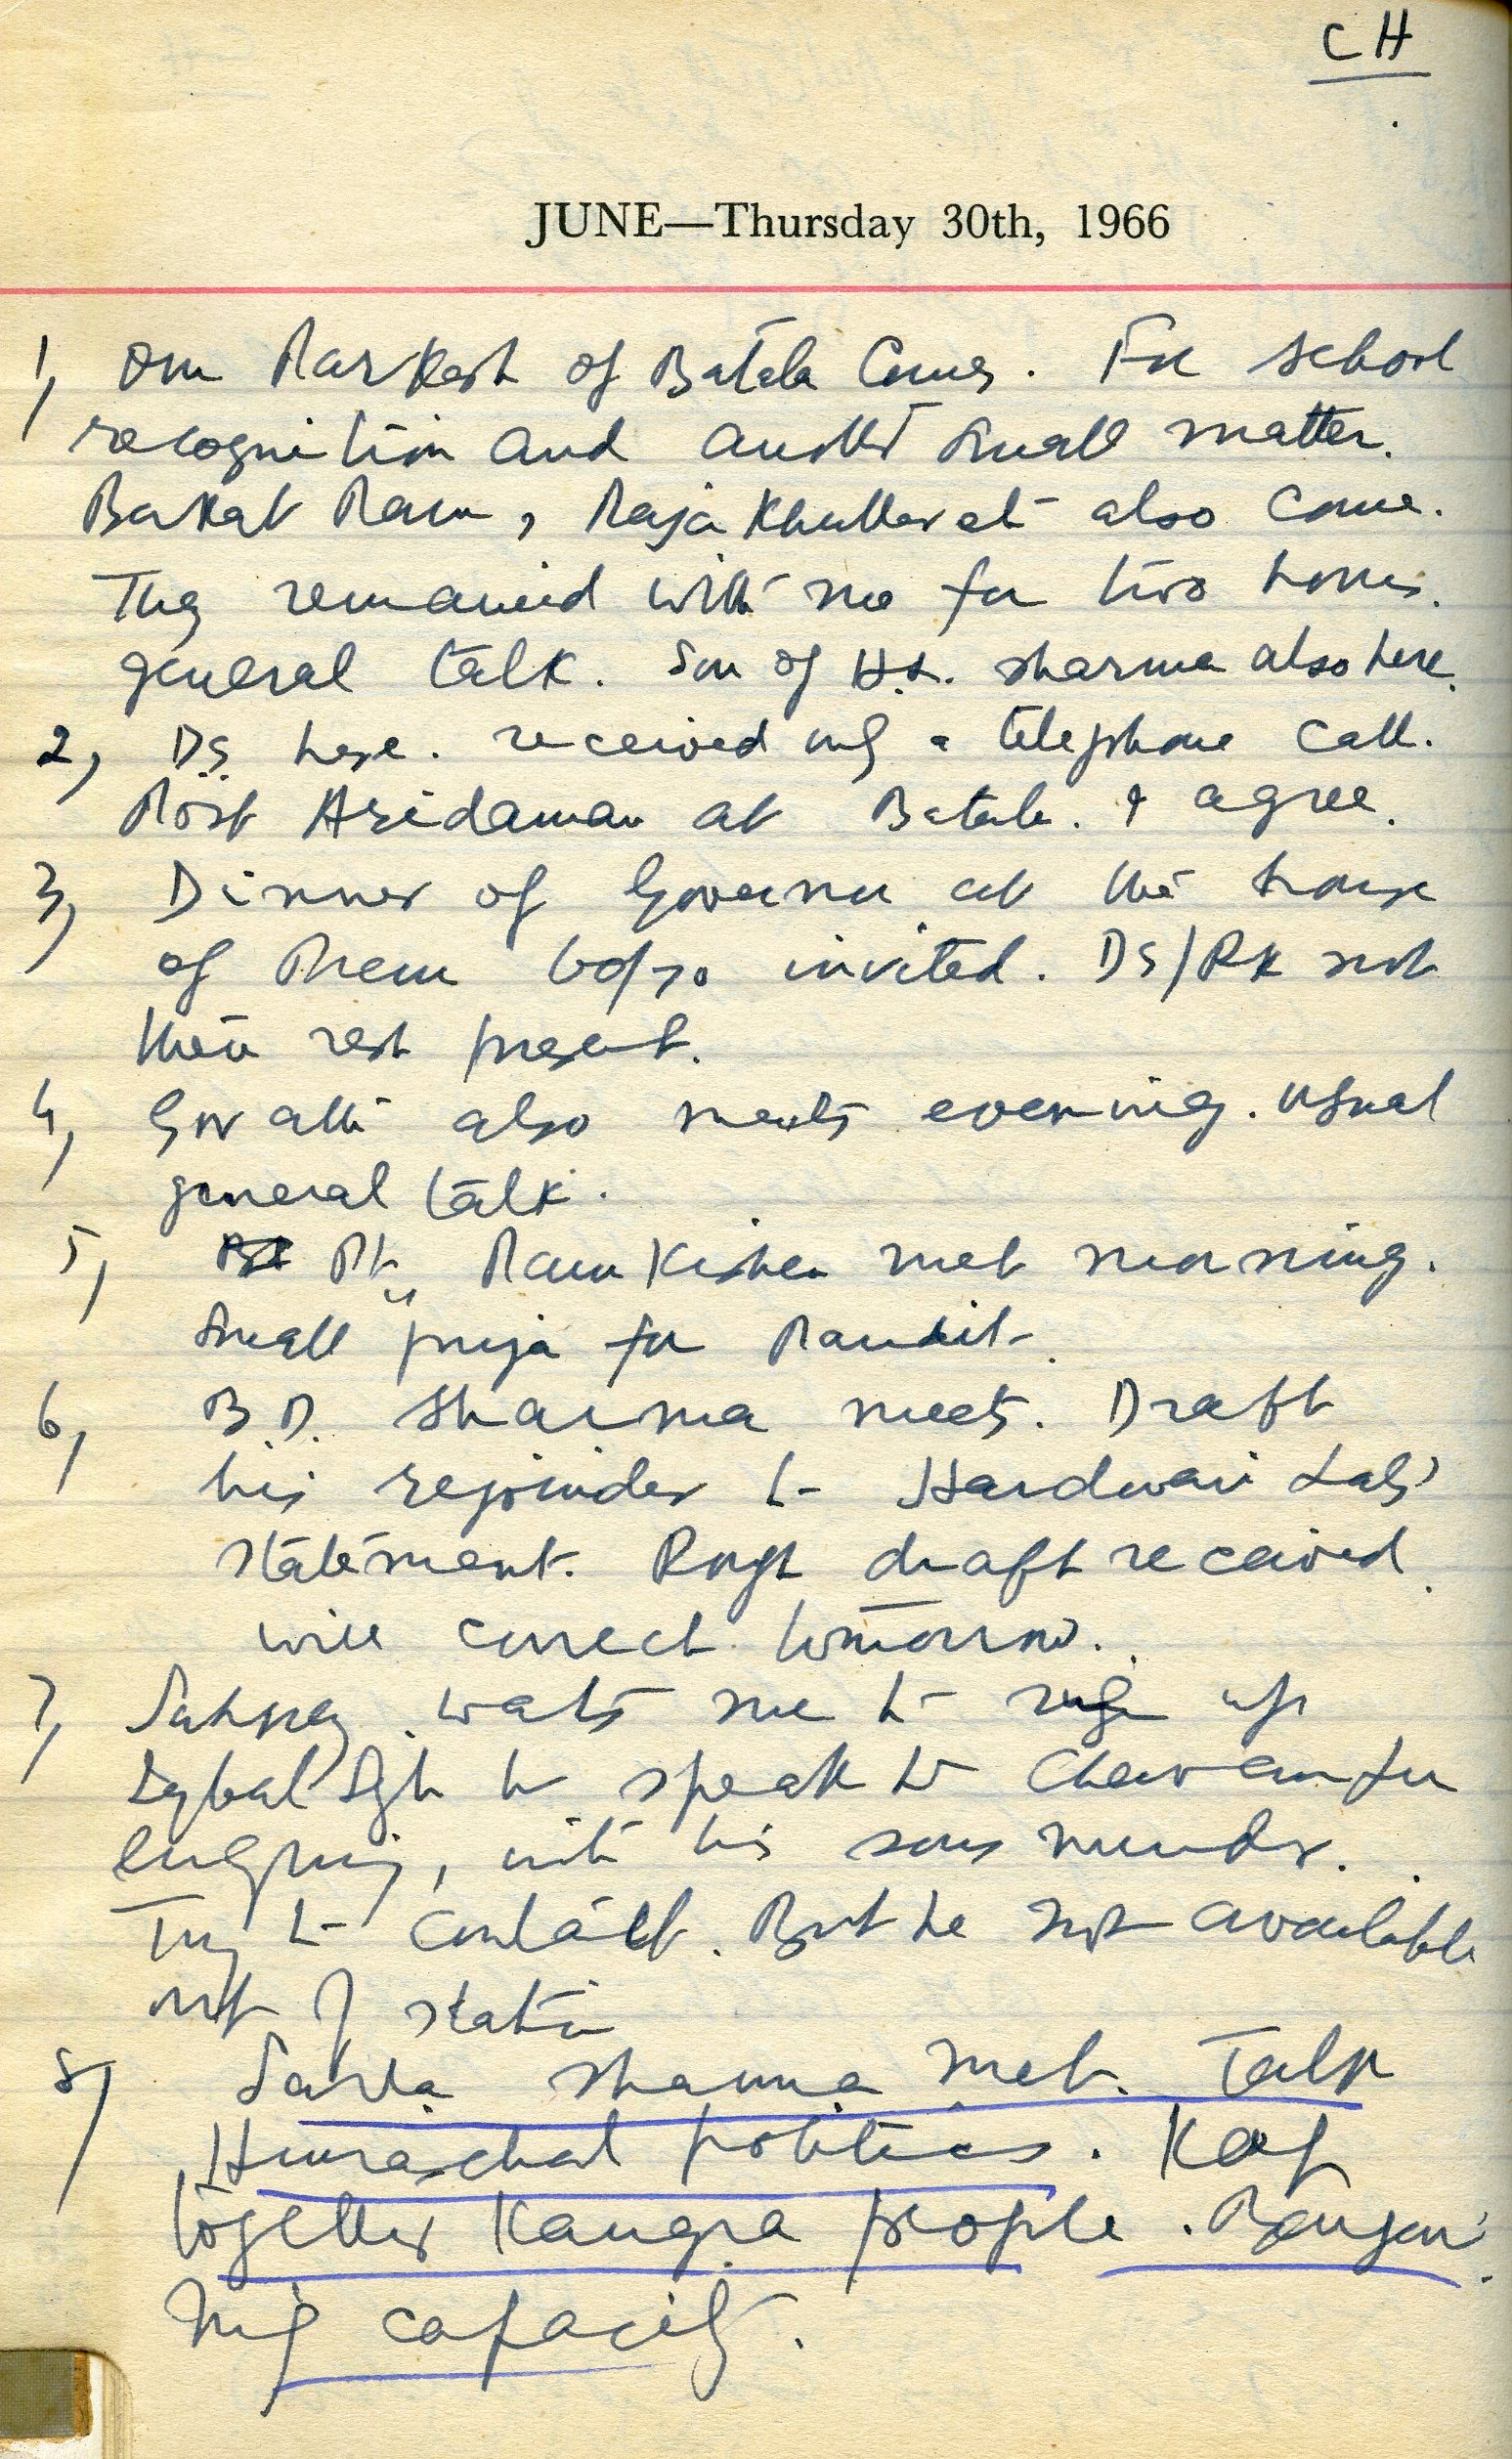 CH
JUNE—Thursday 30th, 1966
1, Om Parkash of Batala Comes. For school
recognition and another small matter.
Barkat Ram, Raja Khullar etc also come.
They remained with me for two hours.
general talk. Son of H.L. Sharma also here.
2, DS here. received only a telephone call.
Post Aridaman at Batala. I agree.
3, Dinner of Governor at the house
of Prem invited. DS/RK not
there rest present.
4, also meets evening. usual
general talk.
5, Pt. Ram Kishen met morning.
Small puja for Pandit.
6, B.D. Sharma meets. Draft
his rejoinder to Hardwari Lal's
statement. Rough draft received.
will correct tomorrow.
7, wants me to ring up
Iqbal Sgh to speak to Chavan for
enquiry, into his sons murder.
Try to contact. But he not available
out of station
8, Sarla Sharma met. Talk
Himachal politics. Keep
together Kangra people.
capacity.